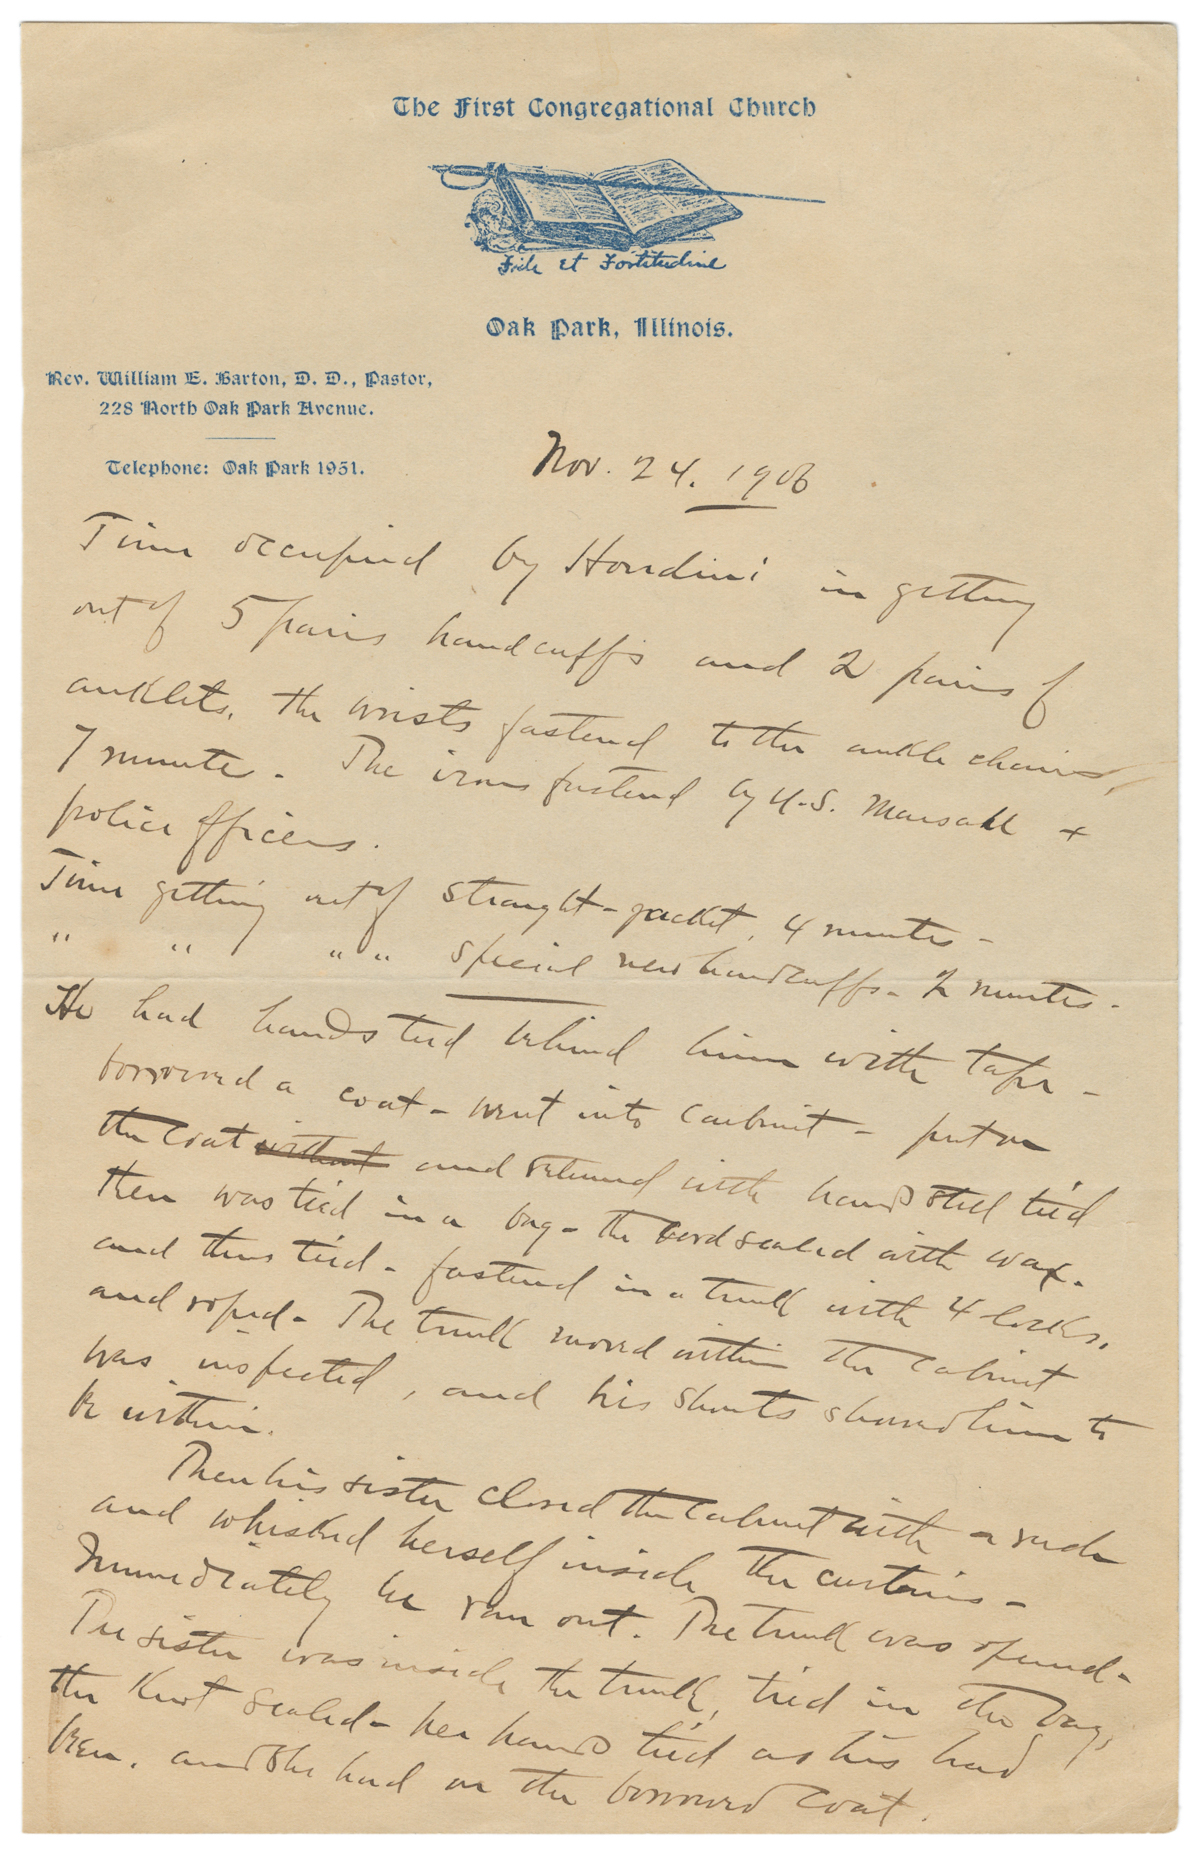 The First Congregational Church
Fide et Fortitudine
Oak Park, Illinois.
Rev. William E. Barton, D. D., Pastor,
228 North Oak Park Avenue.
Telephone: Oak Park 1951.
Nov. 24. 1906
Time occupied by Houdini in getting
out of 5 pairs handcuffs and 2 pairs of
anklets, the wrists fastened to the ankle chains,
7 minutes. The irons fastened by U.S. Marsall +
police officers.
Time getting out of straught-jacket, 4 minutes -
" " " " special new handcuffs - 2 minutes -
He had hands tied behind him with tape -
borrowed a coat - went into cabinet - put on
the coat without and returned with hands still tied
then was tied in a bag - the cord sealed with wax.
and thus tied - fastened in a trunk with 4 locks,
and roped - The trunk moved within the cabinet
was inspected, and his shouts showed him to
be within.
Then his sister closed the cabinet with a rush
and whisked herself inside the curtains -
Immediately he ran out. The trunk was opened -
The sister was inside the trunk, tied in the bag,
the knot sealed - her hands tied as his had
been. and she had on the borrowed coat.